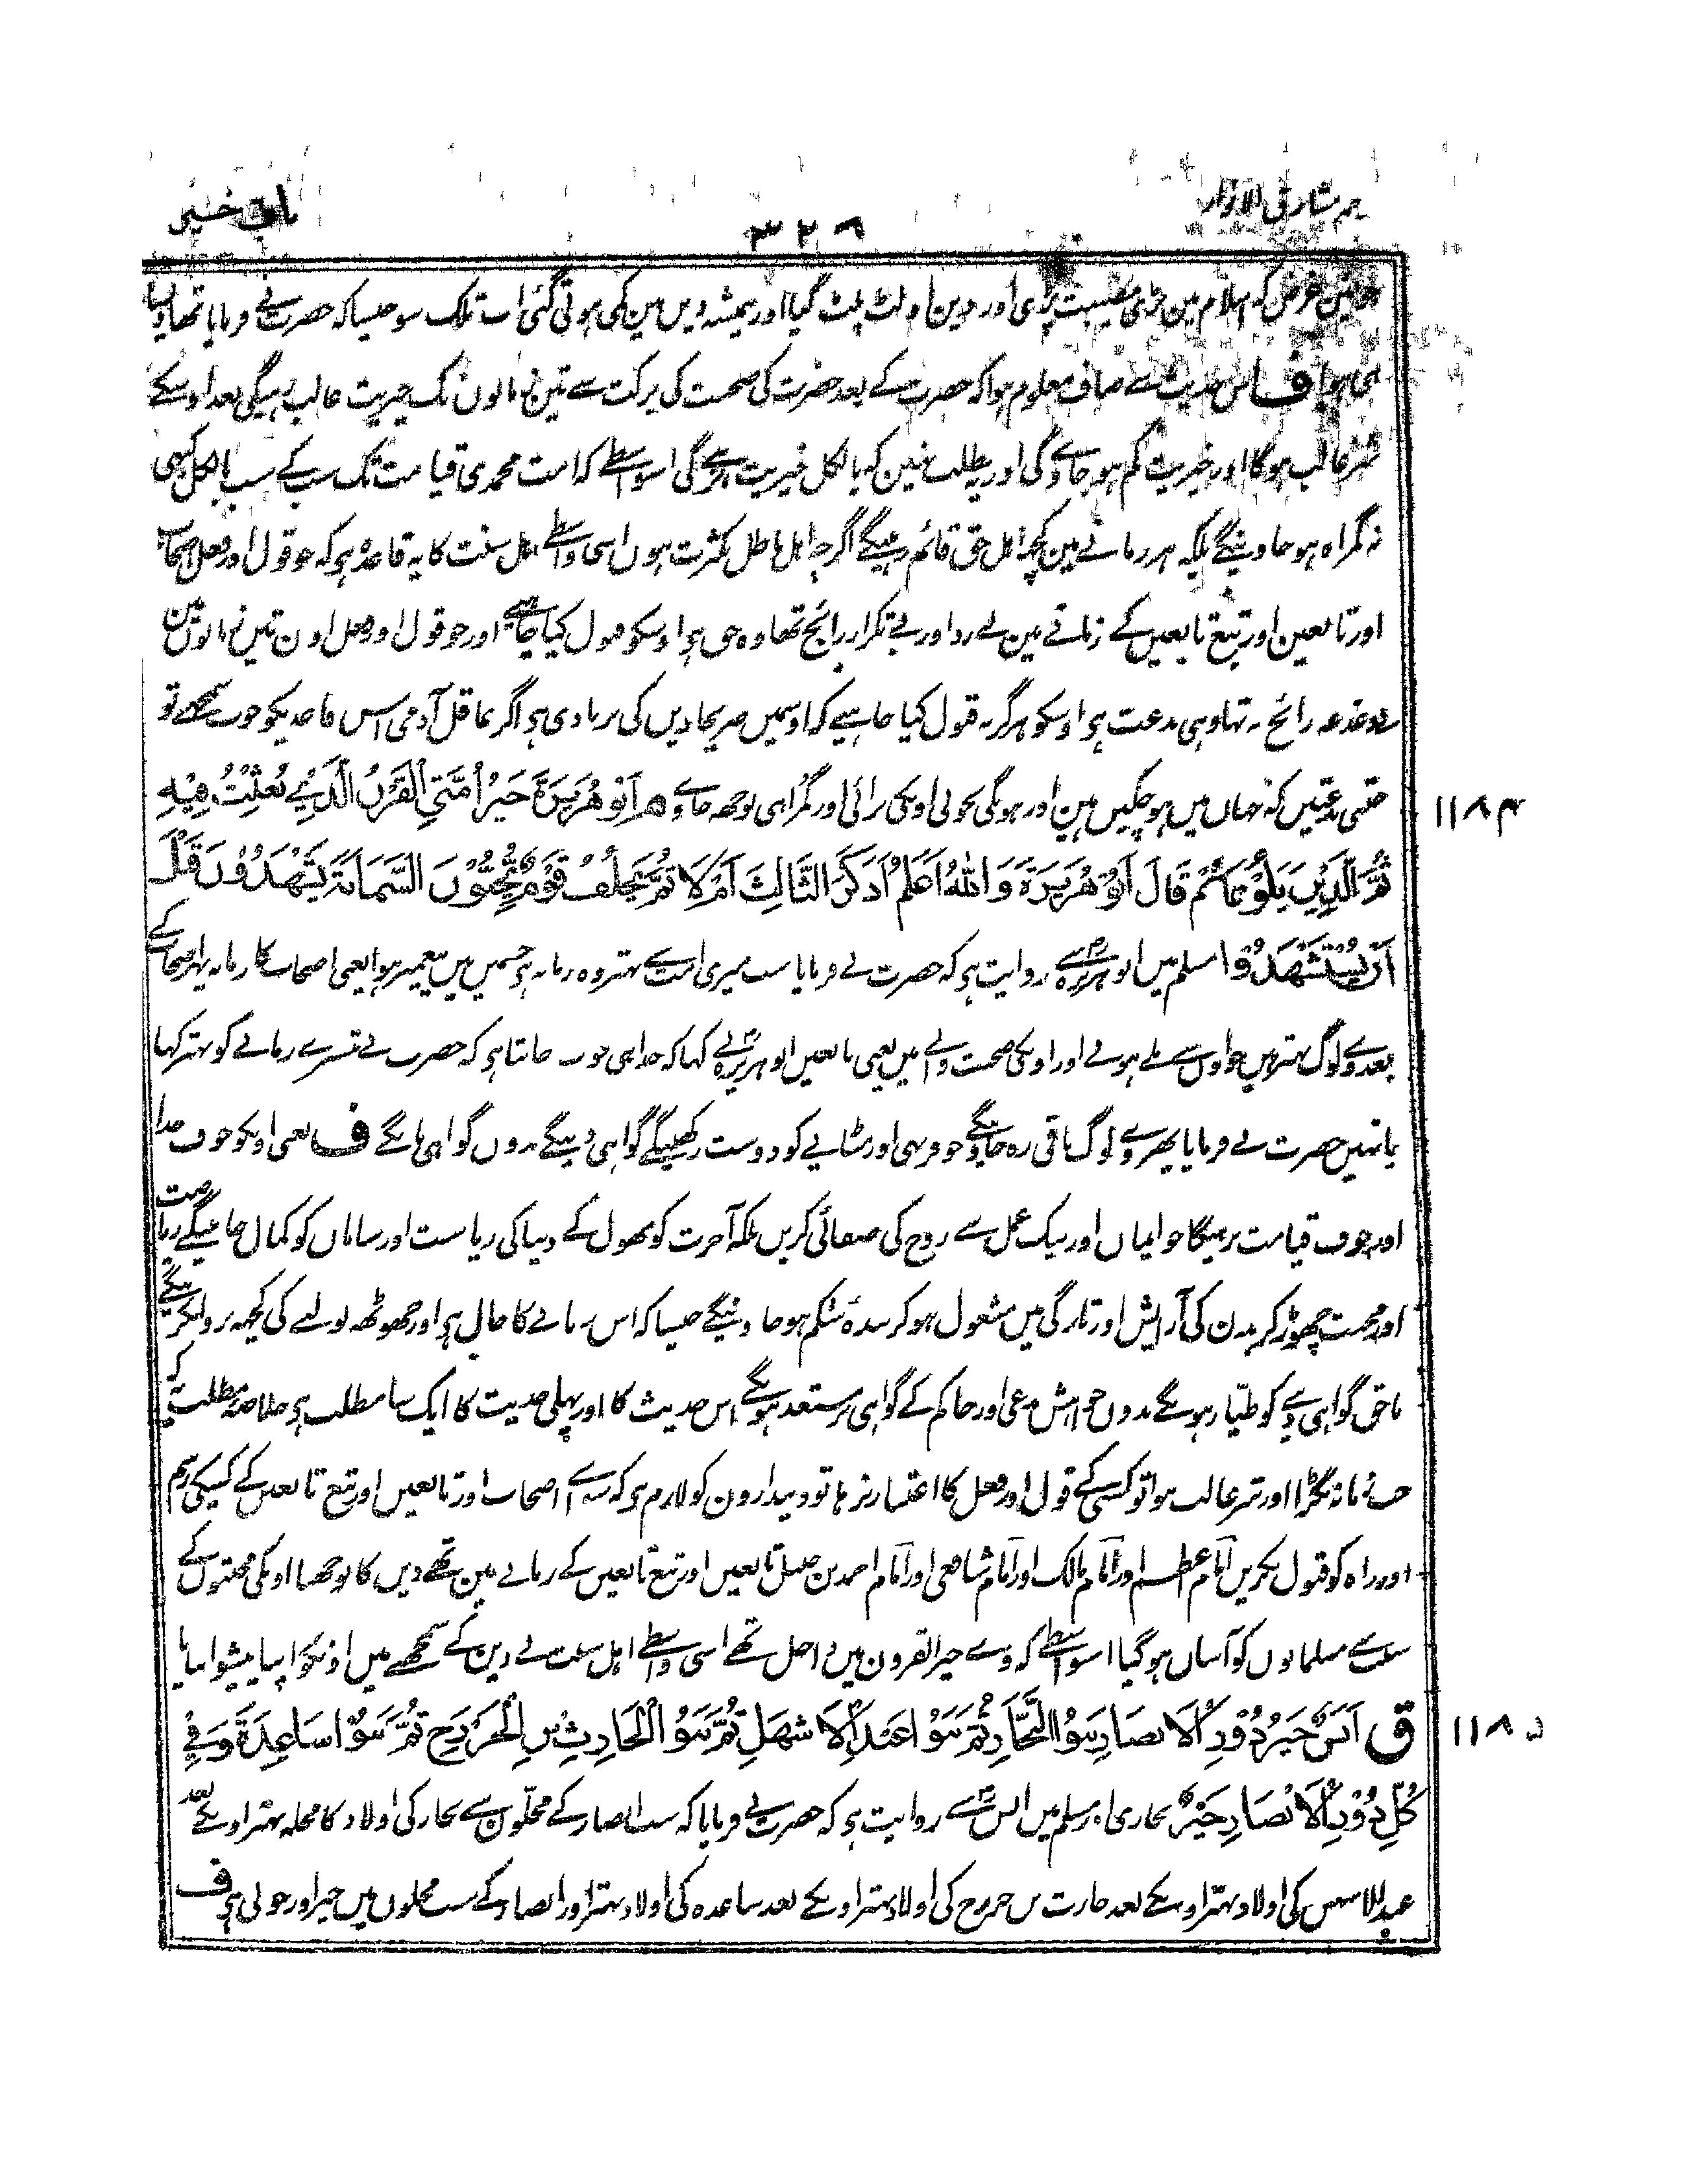 ۳۲۶
ہوئین غرض کہ اسلام مین بڑی مصیبت پڑی اور دین اولٹ پلٹ گیا اور ہمیشہ دین مین کمی ہوتی گئی اب تلک سو جیسا کہ حضرت نے فرمایا تھا ویسا
ہی ہوا ف اس حدیث سے صاف معلوم ہوا کہ حضرت کے بعد حضرت کی صحبت کی برکت سے تین زمانون تک خیریت غالب رہیگی بعد اوسکے
شر غالب ہوگا اور خیریت کم ہو جاویگی اور یہ مطلب نہین کہ بالکل خیریت نہ رہیگی اسواسطے کہ امت محمدی قیامت تک سب کے سب بالکل کبھی
نہ گمراہ ہو جاوینگے بلکہ ہر زمانے مین کچھ اہل حق قائم رہینگے اگرچہ اہل باطل بکثرت ہوں اسی واسطے اہل سنت کا یہ قاعدہ ہے کہ جو قول اور فعل اصحاب
اور تابعین اور تبع تابعین کے زمانے مین بے رد اور بے تکرار رائج تھا وہ حق ہے اوسکو قبول کیا چاہیے اور جو قول اور فعل اون تین زمانوں مین
بیدغدغہ رائج نہ تھا وہی بدعت ہے اوسکو ہرگز نہ قبول کیا چاہیے کہ اوسمیں صریحا دین کی بربادی ہے اگر عاقل آدمی اس قاعدیکو خوب سمجھے تو
جتنی بدعتیں کہ جہاں میں ہو چکیں ہین اور ہونگی بخوبی اونکی برائی اور گمراہی بوجھ جاوے م اَبُوْ هُرَيْرَةَ خَيْرُ اُمَّتِي الْقَرْنُ الَّذِيْ بُعِثْتُ فِيْهِ
۱۱۸۴
ثُمَّ الَّذِيْنَ يَلُوْنَهُمْ قَالَ اَبُوْ هُرَيْرَةَ وَاللهُ اَعْلَمُ اَذَكَرَ الثَّالِثَ اَمْ لَا ثُمَّ يَخْلُفُ قَوْمٌ يُحِبُّوْنَ السَّمَانَةَ يَشْهَدُوْنَ قَبْلَ
اَنْ يُسْتَشْهَدُوْا مسلم میں ابو ہریرہ سے روایت ہے کہ حضرت نے فرمایا سب میری امت سے بہتر وہ زمانہ ہے جسمیں میں پیغمبر ہوا یعنی اصحاب کا زمانہ پھر اصحاب کے
بعد وے لوگ بہتر ہیں جو اون سے ملے ہوئے اور اونکی صحبت والے ہیں یعنی تابعین ابو ہریرہ نے کہا کہ خدا ہی خوب جانتا ہے کہ حضرت نے تیسرے زمانے کو بہتر کہا
یا نہیں حضرت نے فرمایا پھر وے لوگ باقی رہ جاوینگے جو فربہی اور مٹاپے کو دوست رکھینگے گواہی دینگے بدون گواہی مانگے ف یعنی اونکو خوف خدا
اور خوف قیامت نرہیگا جو ایمان اور نیک عمل سے روح کی صفائی کریں بلکہ آخرت کو بھول کے دنیا کی ریاست اور سامان کو کمال جانینگے ریاضت
اور محنت چھوڑ کر بدن کی آرایش اور تازگی میں مشغول ہو کر بندۂ شکم ہو جاوینگے جیسا کہ اس زمانے کا حال ہے اور جھوٹھ بولنے کی کچھ پروا نکرینگے
ناحق گواہی دینے کو طیّار ہونگے بدون خواہش مدعی اور حاکم کے گواہی پر مستعد ہونگے اس حدیث کا اور پہلی حدیث کا ایک سا مطلب ہے خلاصہ مطلب یہ کہ
جب زمانہ بگڑا اور شر غالب ہوا تو کسی کے قول اور فعل کا اعتبار نرہا تو دیندارون کو لازم ہے کہ سواے اصحاب اور تابعین اور تبع تابعین کے کسیکی رسم
اور راہ کو قبول نکریں امام اعظم اور امام مالک اور امام شافعی اور امام احمد بن حنبل تابعین اور تبع تابعین کے زمانے مین تھے دین کا بوجھنا اونکی محنتوں کے
سبب سے مسلمانوں کو آسان ہو گیا اسواسطے کہ وے خیر القرون میں داخل تھے اسی واسطے اہل سنت نے دین کے سمجھنے میں اونکو اپنا پیشوا بنایا
ق اَنَسٌ خَيْرُ دُوْرِ الْاَنْصَارِ بَنُوا النَّجَّارِ ثُمَّ بَنُوْ عَبْدِ الْاَشْهَلِ ثُمَّ بَنُوْ الْحَارِثِ بْنِ الْخَزْرَجِ ثُمَّ بَنُوْ سَاعِدَةَ وَفِيْ
۱۱۸۵
كُلِّ دُوْرِ الْاَنْصَارِ خَيْرٌ بخاری اور مسلم میں انس سے روایت ہے کہ حضرت نے فرمایا کہ سب انصار کے محلّون سے نجار کی اولاد کا محلہ بہتر اونکے بعد
عبد الاشہل کی اولاد بہتر اونکے بعد حارث بن خزرج کی اولاد بہتر اونکے بعد ساعدہ کی اولاد بہتر اور انصار کے سب محلوں میں خیر اور خوبی ہے ف